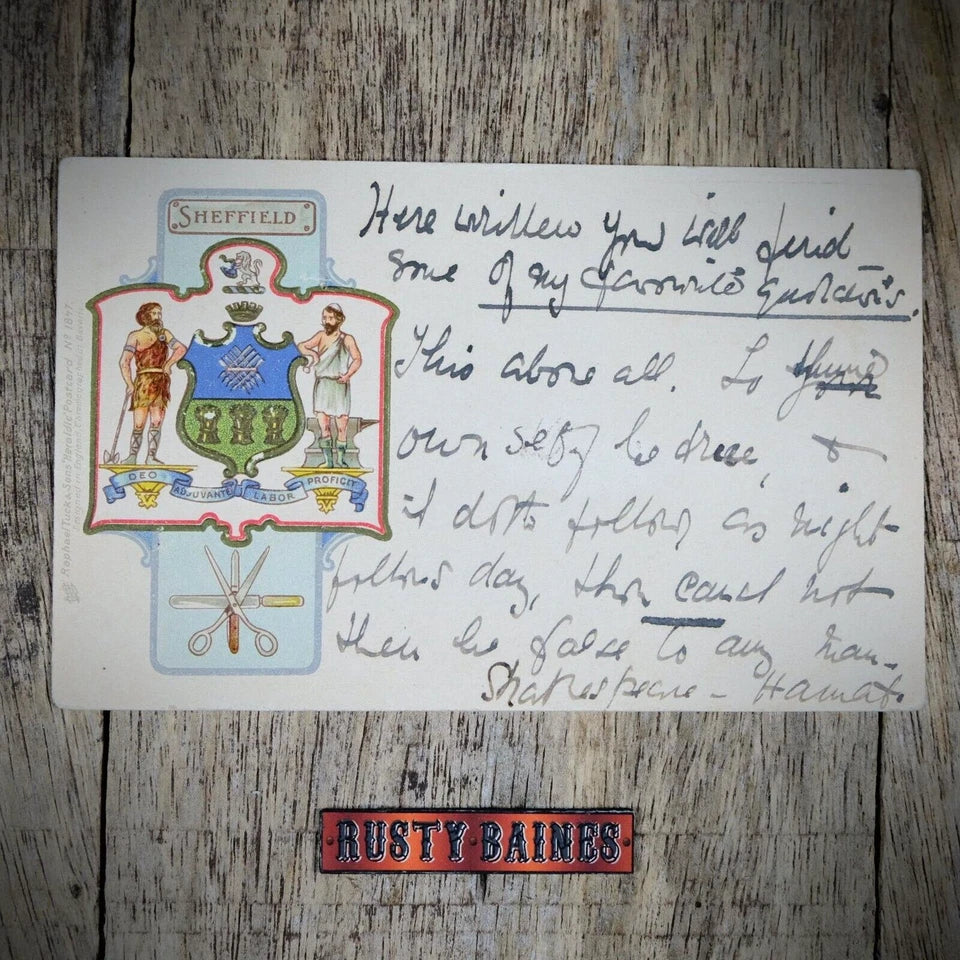 SHEFFIELD
Here written you will find
some of my favorite quotations.
This above all. To thine
own self be true, &
it doth follow as night
follows day, thou canst not
then be false to any man.
Shakespeare - Hamlet.
DEO ADJUVANTE LABOR PROFICIT
Raphael Tuck & Sons' Heraldic Postcard Nº 1897.
Designed in England, Chromographed in
RUSTY BAINES